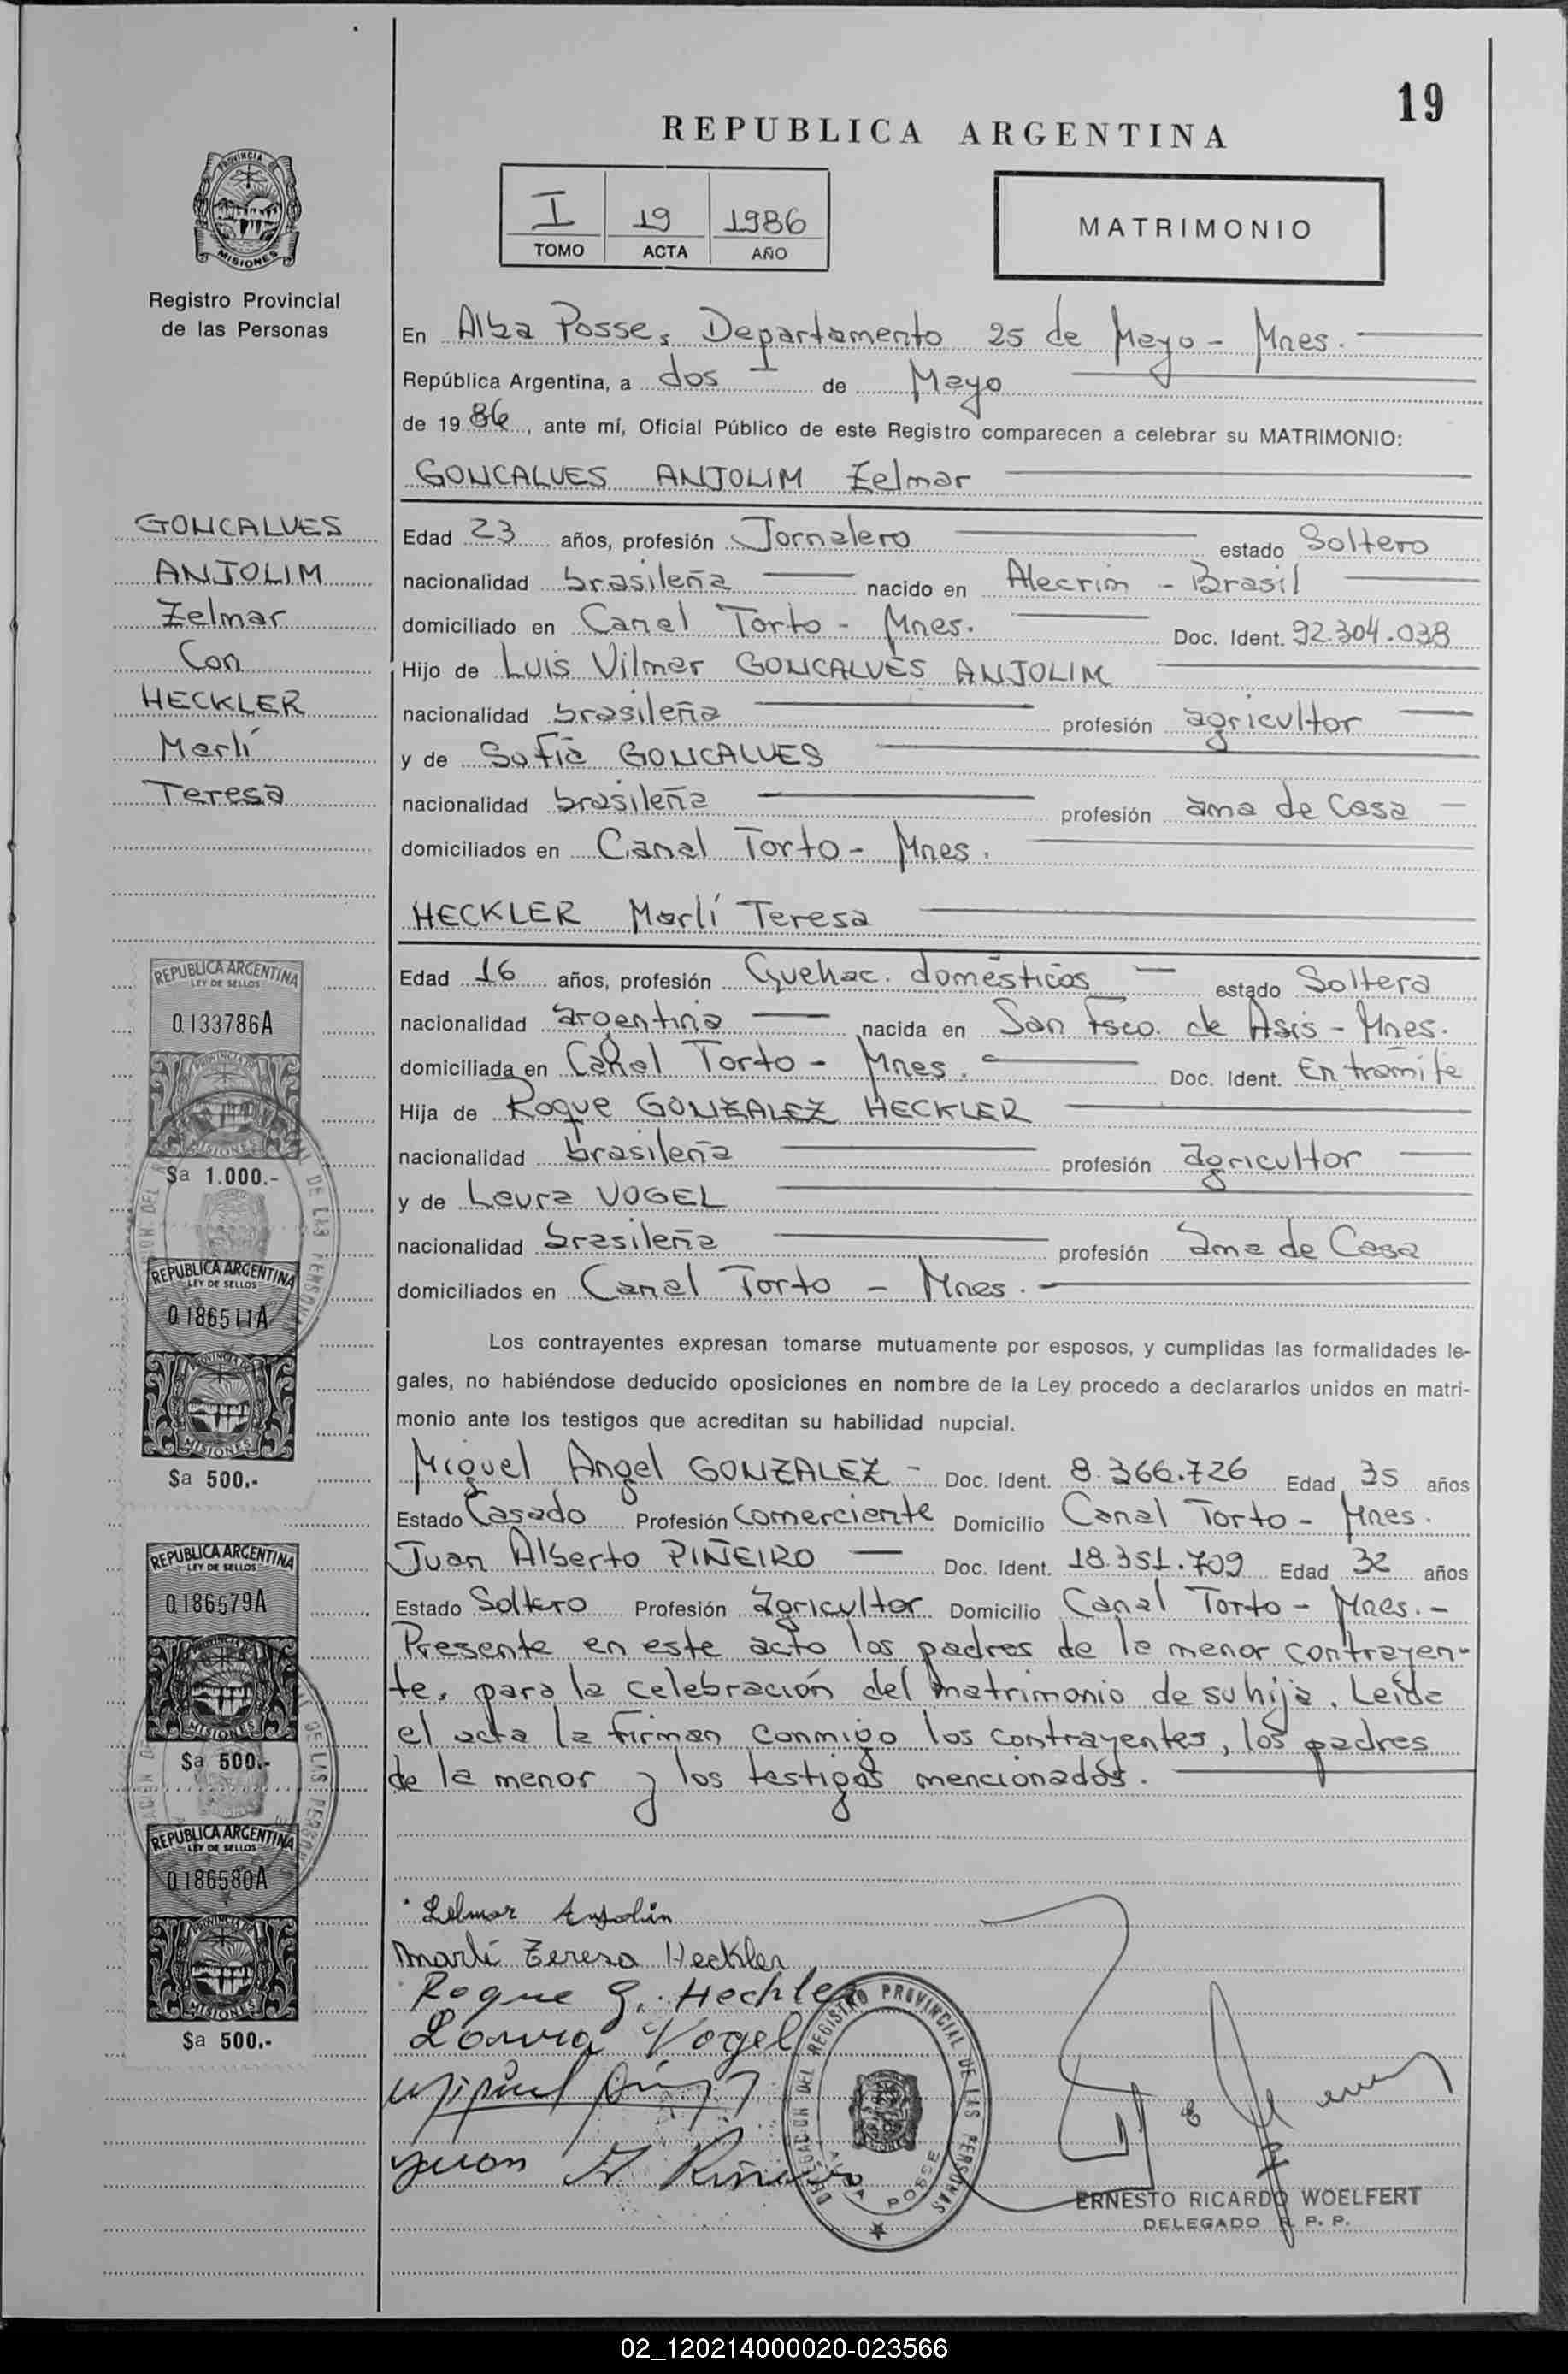 19
REPUBLICA ARGENTINA
I 19 1986
TOMO ACTA AÑO
MATRIMONIO
PROVINCIA DE
MISIONES
Registro Provincial
de las Personas
GONCALVES
ANJOLIM
Zelmar
Con
HECKLER
Marlí
Teresa
En Alba Posse, Departamento 25 de Mayo - Mnes.
República Argentina, a dos de Mayo
de 1986, ante mí, Oficial Público de este Registro comparecen a celebrar su MATRIMONIO:
GONCALVES ANJOLIM Zelmar
Edad 23 años, profesión Jornalero estado Soltero
nacionalidad brasileña nacido en Alecrim - Brasil
domiciliado en Canal Torto - Mnes. Doc. Ident. 92.304.038
Hijo de Luis Vilmar GONCALVES ANJOLIM
nacionalidad brasileña profesión agricultor
y de Sofia GONCALVES
nacionalidad brasileña profesión ama de Casa
domiciliados en Canal Torto - Mnes.
HECKLER Marlí Teresa
Edad 16 años, profesión Quehac. domésticos estado Soltera
nacionalidad argentina nacida en San Fsco. de Asis - Mnes.
domiciliada en Canal Torto - Mnes. Doc. Ident. En tramite
Hija de Roque GONZALEZ HECKLER
nacionalidad brasileña profesión agricultor
y de Laura VOGEL
nacionalidad brasileña profesión ama de Casa
domiciliados en Canal Torto - Mnes.
Los contrayentes expresan tomarse mutuamente por esposos, y cumplidas las formalidades le-
gales, no habiéndose deducido oposiciones en nombre de la Ley procedo a declararlos unidos en matri-
monio ante los testigos que acreditan su habilidad nupcial.
Miguel Angel GONZALEZ - Doc. Ident. 8.366.726 Edad 35 años
Estado Casado Profesión Comerciante Domicilio Canal Torto - Mnes.
Juan Alberto PIÑEIRO Doc. Ident. 18.351.709 Edad 32 años
Estado Soltero Profesión Agricultor Domicilio Canal Torto - Mnes. -
Presente en este acto los padres de la menor contrayen-
te, para la celebración del matrimonio de su hija. Leida
el acta la firman conmigo los contrayentes, los padres
de la menor y los testigos mencionados.
REPUBLICA ARGENTINA
LEY DE SELLOS
0.133786A
PROVINCIA DE
MISIONES
$a 1.000.-
REPUBLICA ARGENTINA
LEY DE SELLOS
0.186511A
PROVINCIA DE
MISIONES
$a 500.-
REPUBLICA ARGENTINA
LEY DE SELLOS
0.186579A
MISIONES
$a 500.-
REPUBLICA ARGENTINA
LEY DE SELLOS
0.186580A
PROVINCIA DE
MISIONES
$a 500.-
Zelmar Anjolin
Marlí Teresa Heckler
Roque G. Heckler
Laura Vogel
Juan A Piñeiro
DELEGACION DEL REGISTRO PROVINCIAL DE LAS PERSONAS
ALBA POSSE
ERNESTO RICARDO WOELFERT
DELEGADO R. P. P.
02_120214000020-023566